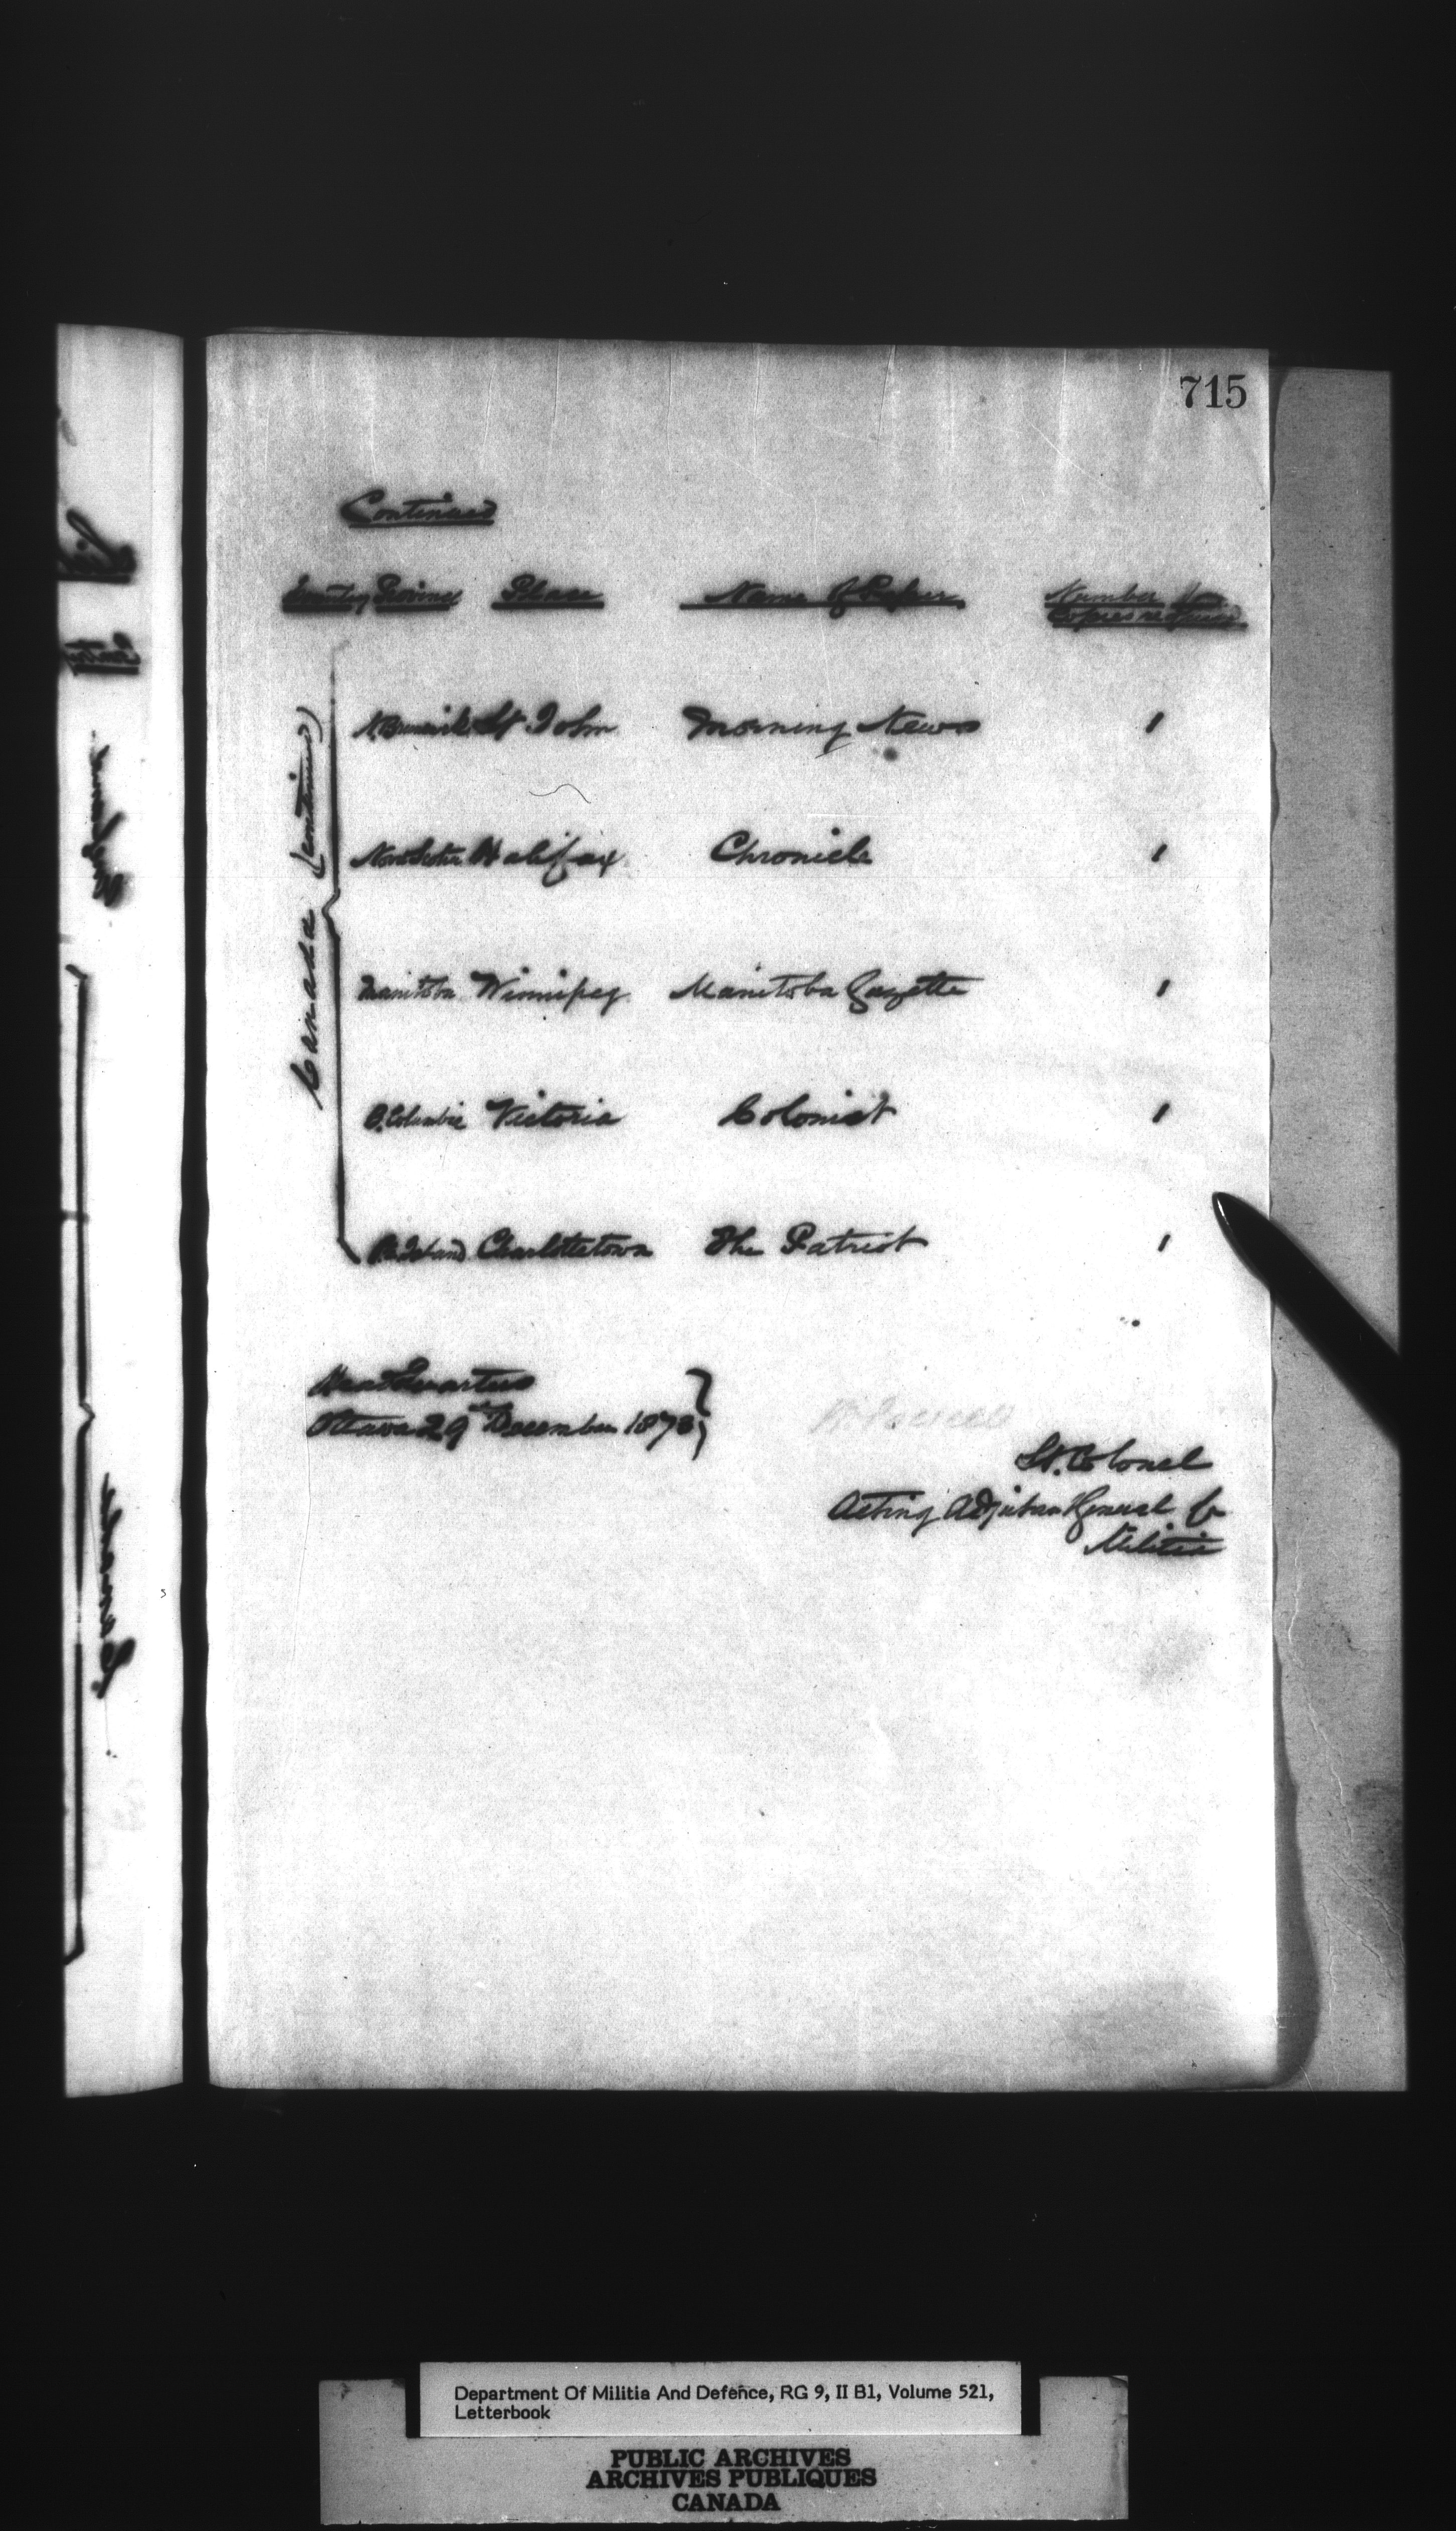 715
Continued
Country Province Place Name of Paper Number of
Copies required
Canada (continued)
N. Brunswick St. John Morning News 1
Nova Scotia Halifax Chronicle 1
Manitoba Winnipeg Manitoba Gazette 1
B. Columbia Victoria Colonist 1
P. E. Island Charlottetown The Patriot 1
Head Quarters
Ottawa 29th December 1873
W. Powell
Lt. Colonel
Acting Adjutant General of
Militia
Department Of Militia And Defence, RG 9, II B1, Volume 521,
Letterbook
PUBLIC ARCHIVES
ARCHIVES PUBLIQUES
CANADA